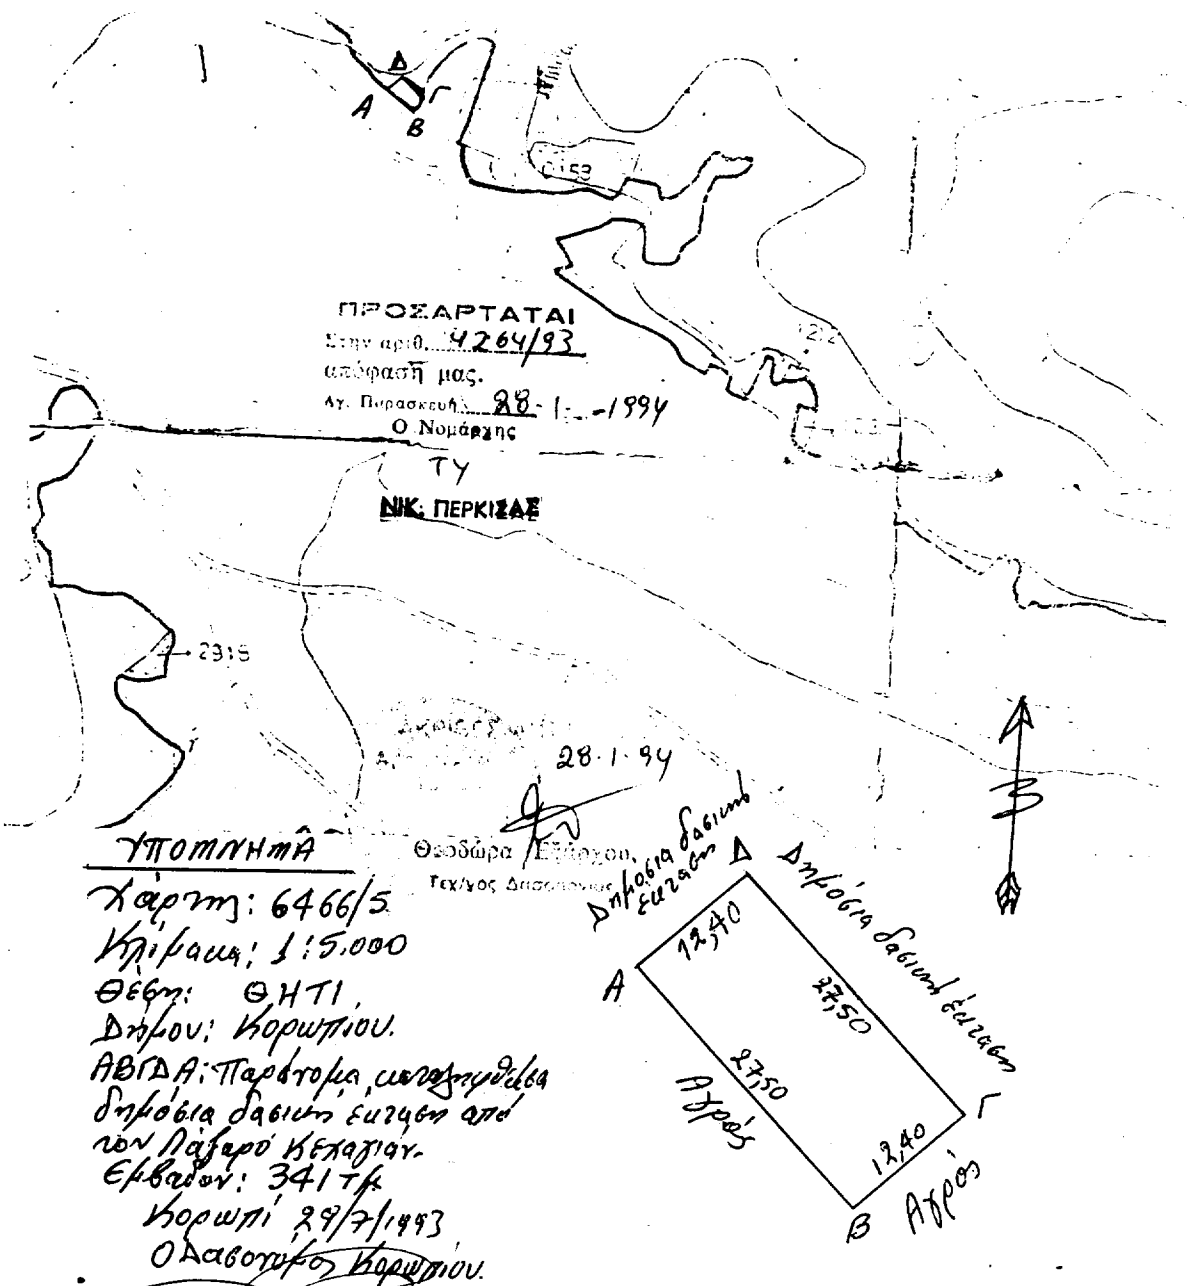 Δ
Α
Γ
Β
0153
ΠΡΟΣΑΡΤΑΤΑΙ
Στην αριθ. 4264/93
απόφασή μας.
Αγ. Παρασκευή 28-1-1994
Ο Νομάρχης
ΤΥ
ΝΙΚ. ΠΕΡΚΙΖΑΣ
2918
28.1.94
Θεοδώρα Εξάρχου
Τεχ/γος Δασοπονίας
ΥΠΟΜΝΗΜΑ
Χάρτης: 6466/5
Κλίμακα: 1:5.000
Θέση: ΘΗΤΙ
Δήμου: Κορωπίου.
ΑΒΓΔΑ: Παράνομα καταληφθείσα
δημόσια δασική έκταση από
τον Λάζαρο Κεχαγιάν.
Εμβαδόν: 341 τμ
Κορωπί 29/7/1993
Ο Δασονόμος Κορωπίου.
Δημόσια δασική
έκταση
Δ
Δημόσια δασική έκταση
12,40
Α
27,50
27,50
Αγρός
Γ
12,40
Αγρός
Β